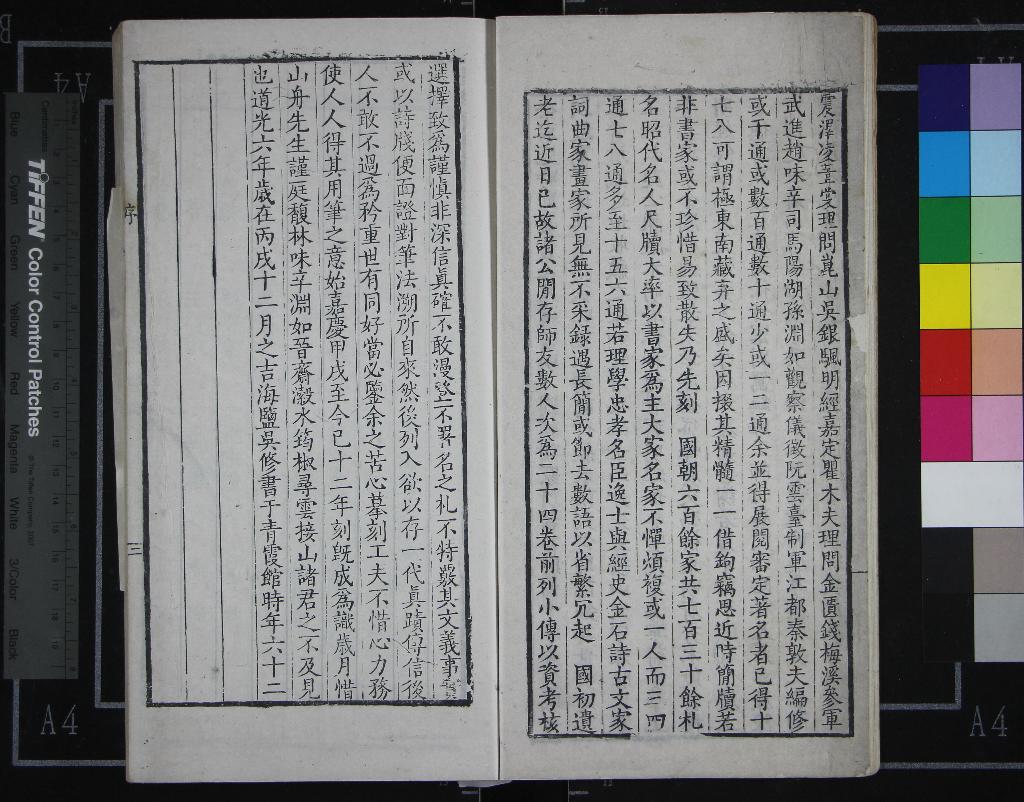 震澤凌菩雯理問崑山吳銀颿明經嘉定瞿木夫理問金匱錢梅溪參軍
武進趙味辛司馬陽湖孫淵如觀察儀徵阮雲臺制軍江都秦敦夫編修
或千通或數百通數十通少或一二通余並得展閱審定著名者已得十
七八可謂極東南藏弆之盛矣因掇其精髓一一借鉤竊思近時簡牘若
非書家或不珍惜易致散失乃先刻　國朝六百餘家共七百三十餘札
名昭代名人尺牘大率以書家爲主大家名家不憚煩複或一人而三四
通七八通多至十五六通若理學忠孝名臣逸士與經史金石詩古文家
詞曲家畫家所見無不采録遇長簡或節去數語以省繁冗起　國初遺
老迄近日已故諸公閒存師友數人次爲二十四卷前列小傳以資考核
選擇致爲謹愼非深信眞確不敢漫登一不署名之札不特覈其文義事實
或以詩牋便面證對筆法溯所自來然後列入欲以存一代眞蹟傳信後
人不敢不過爲矜重世有同好當必鑒余之苦心摹刻工夫不惜心力務
使人人得其用筆之意始嘉慶甲戌至今已十二年刻旣成爲識歲月惜
山舟先生謹庭馥林味辛淵如晉齋澂水筠椒尋雲接山諸君之不及見
也道光六年歲在丙戌十二月之吉海鹽吳修書于青霞館時年六十二
序
三
TIFFEN Color Control Patches
Blue
Cyan
Green
Yellow
Red
Magenta
White
3/Color
Black
A4
A4